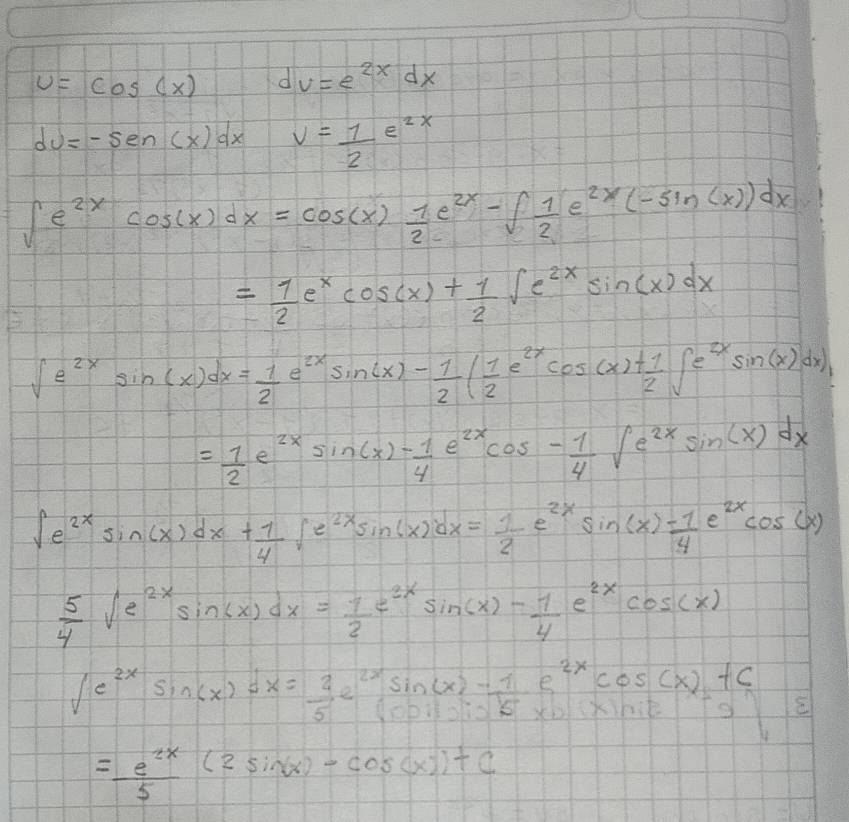 u = cos (x) dv = e^2x dx
du = -sen (x) dx v = 1/2 e^2x
∫ e^2x cos(x) dx = cos(x) 1/2 e^2x - ∫ 1/2 e^2x (-sin(x)) dx
= 1/2 e^x cos(x) + 1/2 ∫ e^2x sin(x) dx
∫ e^2x sin(x) dx = 1/2 e^2x sin(x) - 1/2 (1/2 e^2x cos(x) + 1/2 ∫ e^2x sin(x) dx)
= 1/2 e^2x sin(x) - 1/4 e^2x cos - 1/4 ∫ e^2x sin(x) dx
∫ e^2x sin(x) dx + 1/4 ∫ e^2x sin(x) dx = 1/2 e^2x sin(x) - 1/4 e^2x cos(x)
5/4 ∫ e^2x sin(x) dx = 1/2 e^2x sin(x) - 1/4 e^2x cos(x)
∫ e^2x sin(x) dx = 2/5 e^2x sin(x) - 1/5 e^2x cos(x) + C
= e^2x/5 (2 sin(x) - cos(x)) + C